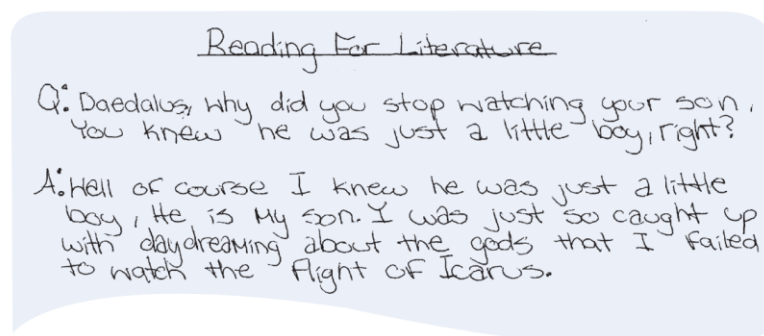 Reading For Literature
Q: Daedalus, why did you stop watching your son.
You knew he was just a little boy, right?
A: Well of course I knew he was just a little
boy, He is My son. I was just so caught up
with daydreaming about the gods that I failed
to watch the flight of Icarus.